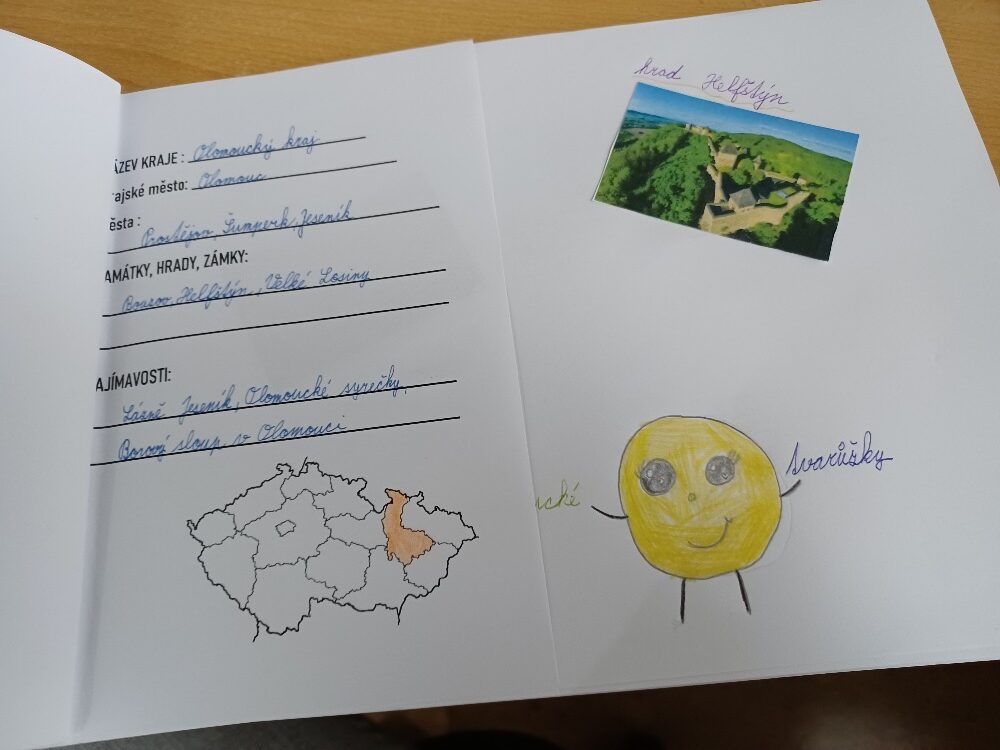 ÁZEV KRAJE: Olomoucký kraj
rajské město: Olomouc
ěsta:
Prostějov, Šumperk, Jeseník
AMÁTKY, HRADY, ZÁMKY:
Bouzov, Helfštýn, Velké Losiny
AJÍMAVOSTI:
Lázně Jeseník, Olomoucké syrečky,
sloup v Olomouci
hrad Helfštýn
ucké
tvarůžky